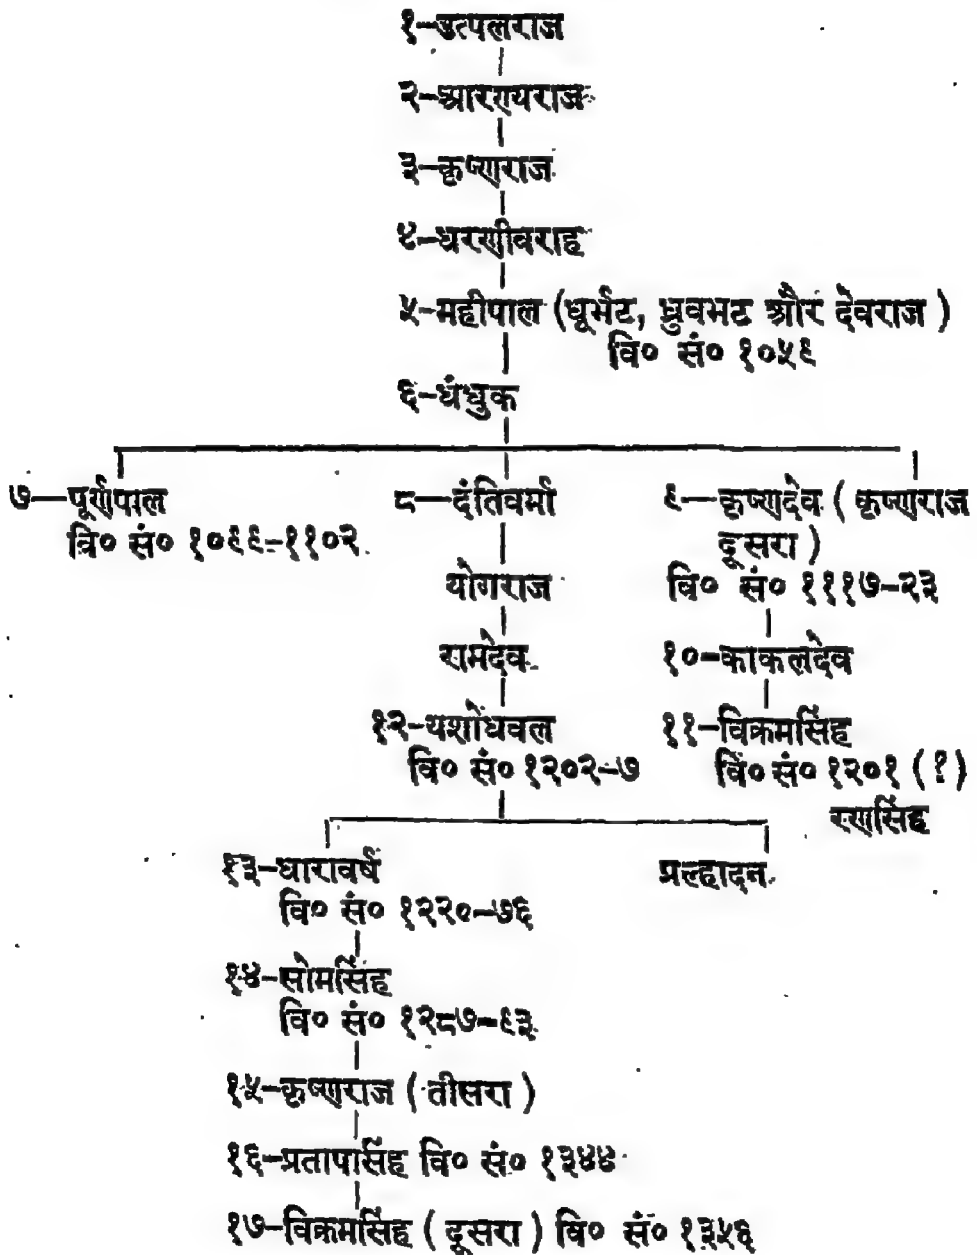 १-उत्पलराज
२-आरण्यराज
३-कृष्णराज
४-धरणीवराह
५-महीपाल (धूर्भट, ध्रुवभट और देवराज )
वि० सं० १०५९
६-धंधुक
७—पूर्णपाल
वि० सं० १०९९-११०२
८—दंतिवर्मा
योगराज
रामदेव
१२-यशोधवल
वि० सं० १२०२-७
९—कृष्णदेव ( कृष्णराज
दूसरा )
वि० सं० १११७-२३
१०-काकलदेव
११-विक्रमसिंह
वि० सं० १२०१ (?)
रणसिंह
१३-धारावर्ष
वि० सं० १२२०-७६
प्रल्हादन
१४-सोमसिंह
वि० सं० १२८७-९३
१५-कृष्णराज ( तीसरा )
१६-प्रतापसिंह वि० सं० १३४४
१७-विक्रमसिंह ( दूसरा ) वि० सं० १३५६